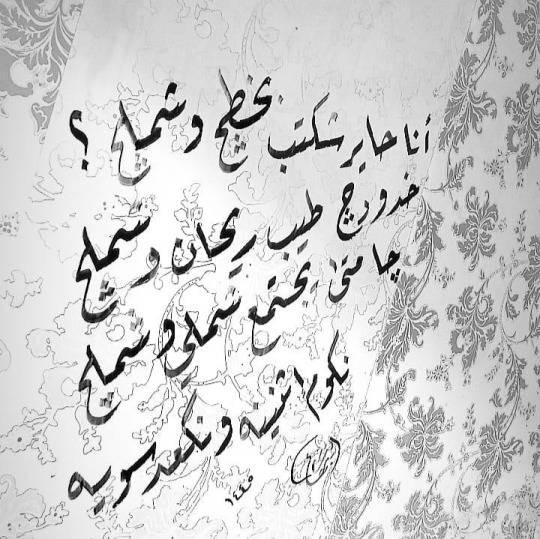 أنا حاير شكتب بخطچ وشملچ ؟
خدودچ طيب ريحان وشملچ
چا متىٰ يجتمع شملي وشملچ
نكوم اثنينه ونگعد سويه
١٤٤٥